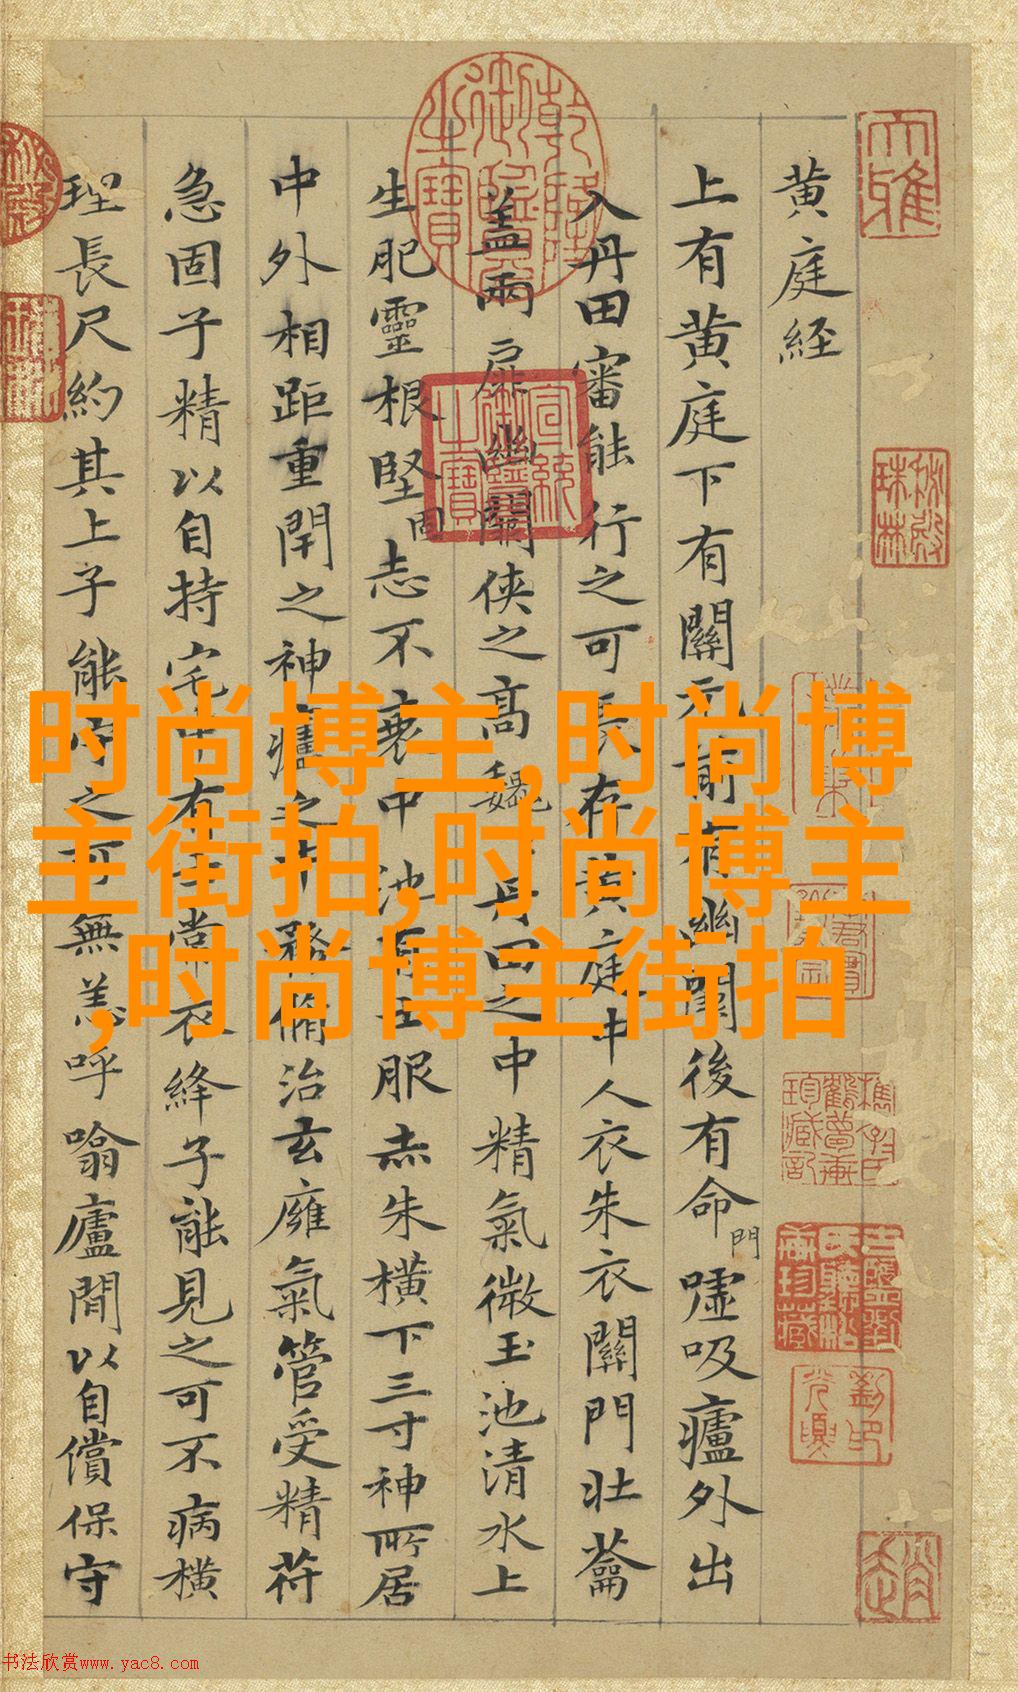 黄庭经
上有黄庭下有關元前有幽闕後有命門噓吸廬外出
入丹田審能行之可長存黄庭中人衣朱衣關門壯蘥
盖兩扉幽關俠之高巍丹田之中精氣微玉池清水上
生肥靈根堅固志不衰中池有士服赤朱横下三寸神所居
中外相距重閇之神廬之中務脩治玄癕氣管受精符
急固子精以自持宅中有士常衣絳子能見之可不病横
理長尺約其上子能守之可無恙呼噏廬間以自償保守
时尚博主,时尚博
主街拍,时尚博主
,时尚博主街拍
乾隆御覽之寶
宣統御覽之寶
大雅
书法欣赏www.yac8.com